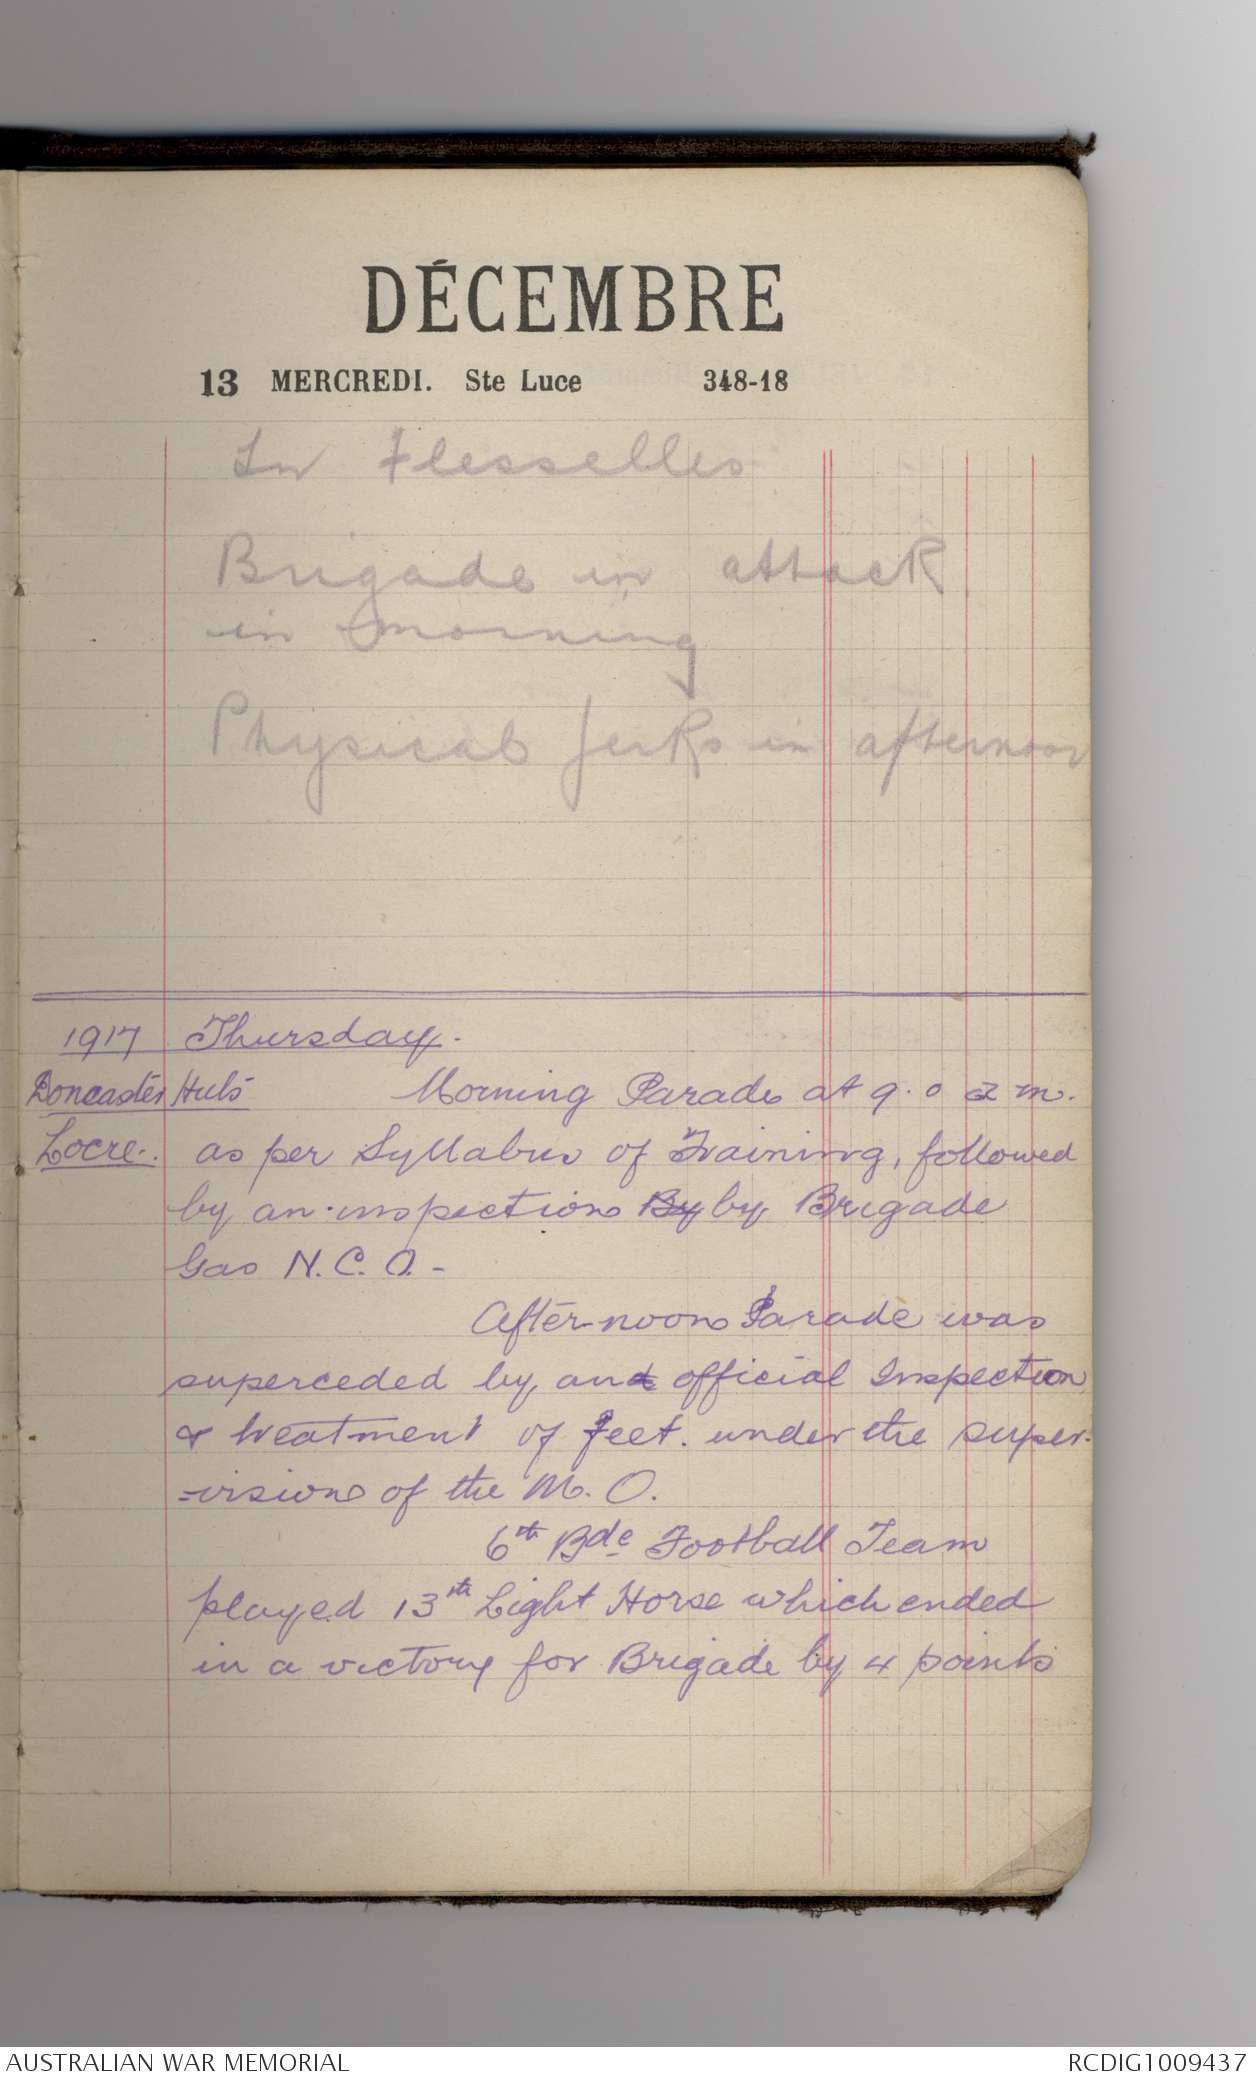 DÉCEMBRE
13 MERCREDI. Ste Luce 348-18
In Flesselles
Brigade in attack
in morning
Physical jerks in afternoon
1917 Thursday.
Doncaster Huts Morning Parade at 9.0 a m.
Locre. as per Syllabus of Training, followed
by an inspection By by Brigade
Gas N.C.O. -
After-noon Parade was
superceded by and official Inspection
& treatment of feet. under the super-
-vision of the M.O.
6th Bde Football Team
played 13th Light Horse which ended
in a victory for Brigade by 4 points
AUSTRALIAN WAR MEMORIAL RCDIG1009437